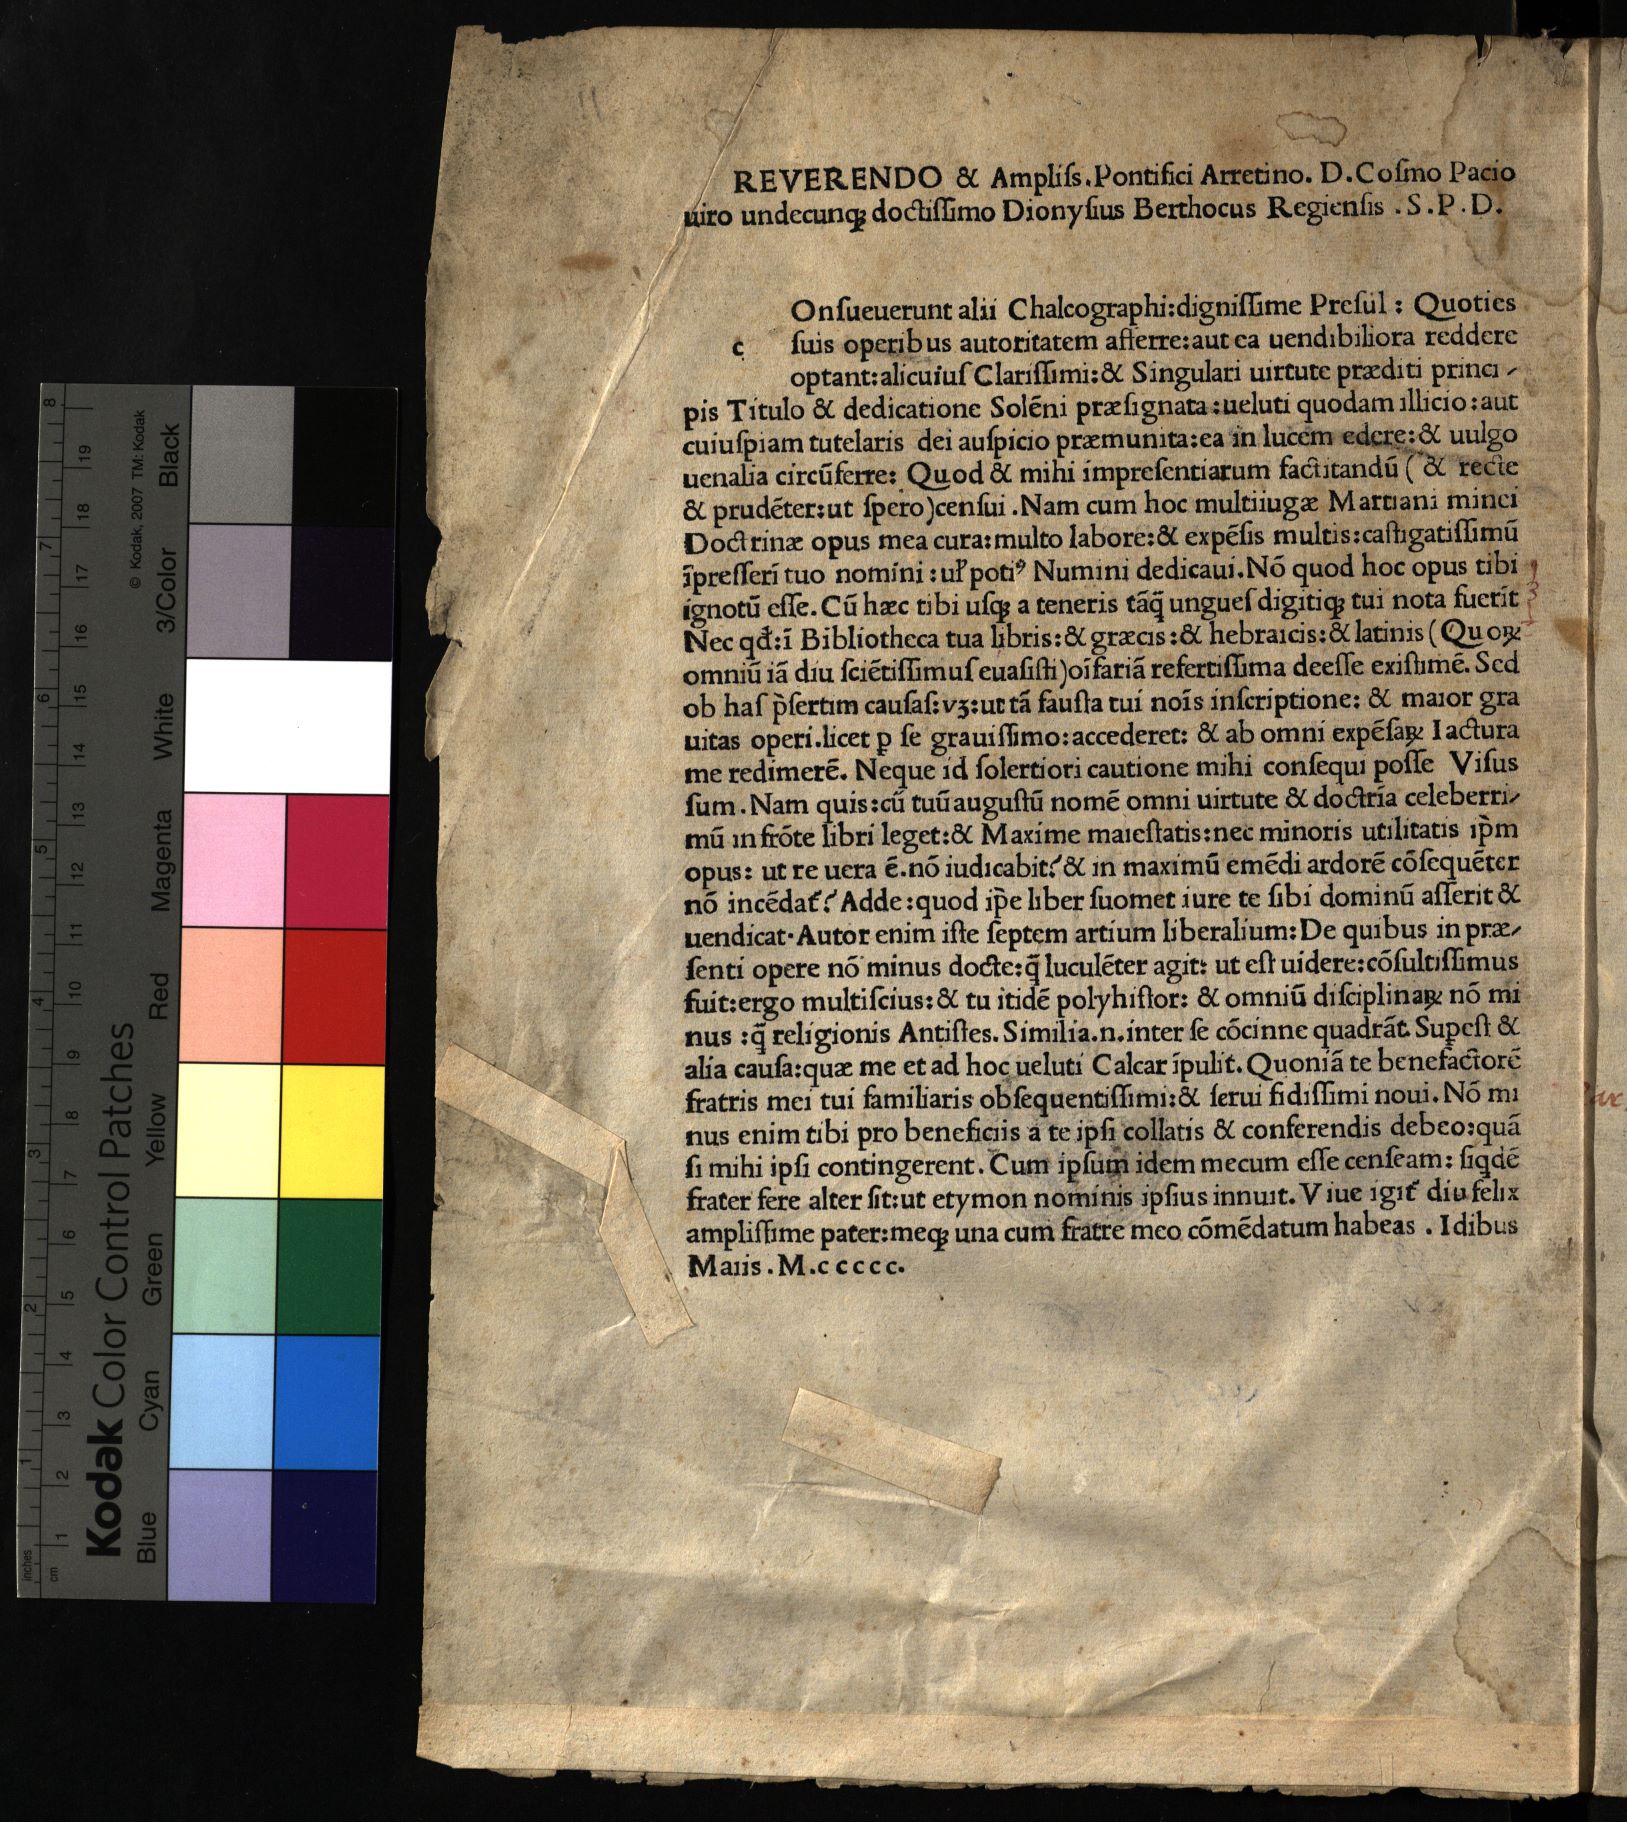 REVERENDO & Ampliſs.Pontifici Arretino. D.Coſmo Pacio
uiro undecunqꝫ doctiſſimo Dionyſius Berthocus Regienſis .S.P.D.
Onſueuerunt alii Chalcographi:digniſſime Preſul : Quoties
c ſuis operibus autoritatem afferre:aut ea uendibiliora reddere
optant:alicuiuſ Clariſſimi:& Singulari uirtute præditi princi-
pis Titulo & dedicatione Solẽni præſignata:ueluti quodam illicio:aut
cuiuſpiam tutelaris dei auſpicio præmunita:ea in lucem edere:& uulgo
uenalia circũferre: Quod & mihi impreſentiarum factitandũ ( & recte
& prudẽter:ut ſpero)cenſui .Nam cum hoc multiiugæ Martiani minei
Doctrinæ opus mea cura:multo labore:& expẽſis multis:caſtigatiſſimũ
ĩpreſſerĩ tuo nomini :uꝉ potiꝰ Numini dedicaui.Nõ quod hoc opus tibi
ignotũ eſſe.Cũ hæc tibi uſqꝫ a teneris tãq̃ ungueſ digitiqꝫ tui nota fuerĩt
Nec qđ:ĩ Bibliotheca tua libris:& græcis:& hebraicis:& latinis (Quoꝝ
omniũ iã diu ſciẽtiſſimuſ euaſiſti)oĩfariã refertiſſima deeſſe exiſtimẽ. Sed
ob haſ p̃ſertim cauſaſ:vꝫ:ut tã fauſta tui noĩs inſcriptione: & maior gra
uitas operi.licet ꝑ ſe grauiſſimo:accederet: & ab omni expẽſaꝝ Iactura
me redimerẽ. Neque id ſolertiori cautione mihi conſequi poſſe Viſus
ſum.Nam quis:cũ tuũ auguſtũ nomẽ omni uirtute & doctrĩa celeberri-
mũ in frõte libri leget:& Maxime maieſtatis:nec minoris utilitatis ip̃m
opus: ut re uera ẽ.nõ iudicabit? & in maximũ emẽdi ardorẽ cõſequẽter
nõ incẽdat̃? Adde:quod ip̃e liber ſuomet iure te ſibi dominũ aſſerit &
uendicat·Autor enim iſte ſeptem artium liberalium:De quibus in præ-
ſenti opere nõ minus docte:q̃ luculẽter agit: ut eſt uidere:cõſultiſſimus
fuit:ergo multiſcius:& tu itidẽ polyhiſtor: & omniũ diſciplinaꝝ nõ mi
nus :q̃ religionis Antiſtes.Similia.n.inter ſe cõcinne quadrãt. Suꝑeſt &
alia cauſa:quæ me et ad hoc ueluti Calcar ĩpulit.Quoniã te benefactorẽ
fratris mei tui familiaris obſequentiſſimi:& ſerui fidiſſimi noui.Nõ mi
nus enim tibi pro beneficiis a te ipſi collatis & conferendis debeo:quã
ſi mihi ipſi contingerent.Cum ipſum idem mecum eſſe cenſeam: ſiqdẽ
frater fere alter ſit:ut etymon nominis ipſius innuit.Viue igit̃ diu felix
ampliſſime pater:meqꝫ una cum fratre meo cõmẽdatum habeas . Idibus
Maiis .M.ccccc.
Kodak Color Control Patches
© Kodak, 2007 TM: Kodak
Blue Cyan Green Yellow Red Magenta White 3/Color Black
inches 1 2 3 4 5 6 7 8
cm 1 2 3 4 5 6 7 8 9 10 11 12 13 14 15 16 17 18 19